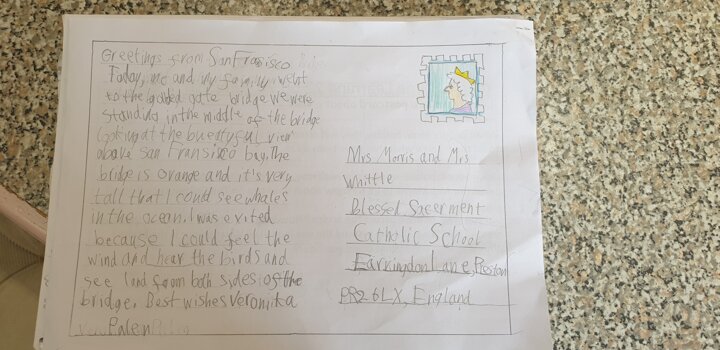 Greetings from San Fransisco
Today, me and my family went
to the golded gate bridge we were
standing in the middle of the bridge
looking at the bueatyful view
above San Fransisco bay. The
bridge is orange and it's very
tall that I could see whales
in the ocean. I was exited
because I could feel the
wind and hear the birds and
see land from both sides of the
bridge. Best wishes Veronika
Palen
Mrs Morris and Mrs
Whittle
Blessed Sacerment
Catholic School
Farringdon Lane, Preston
PR2 6LX, England